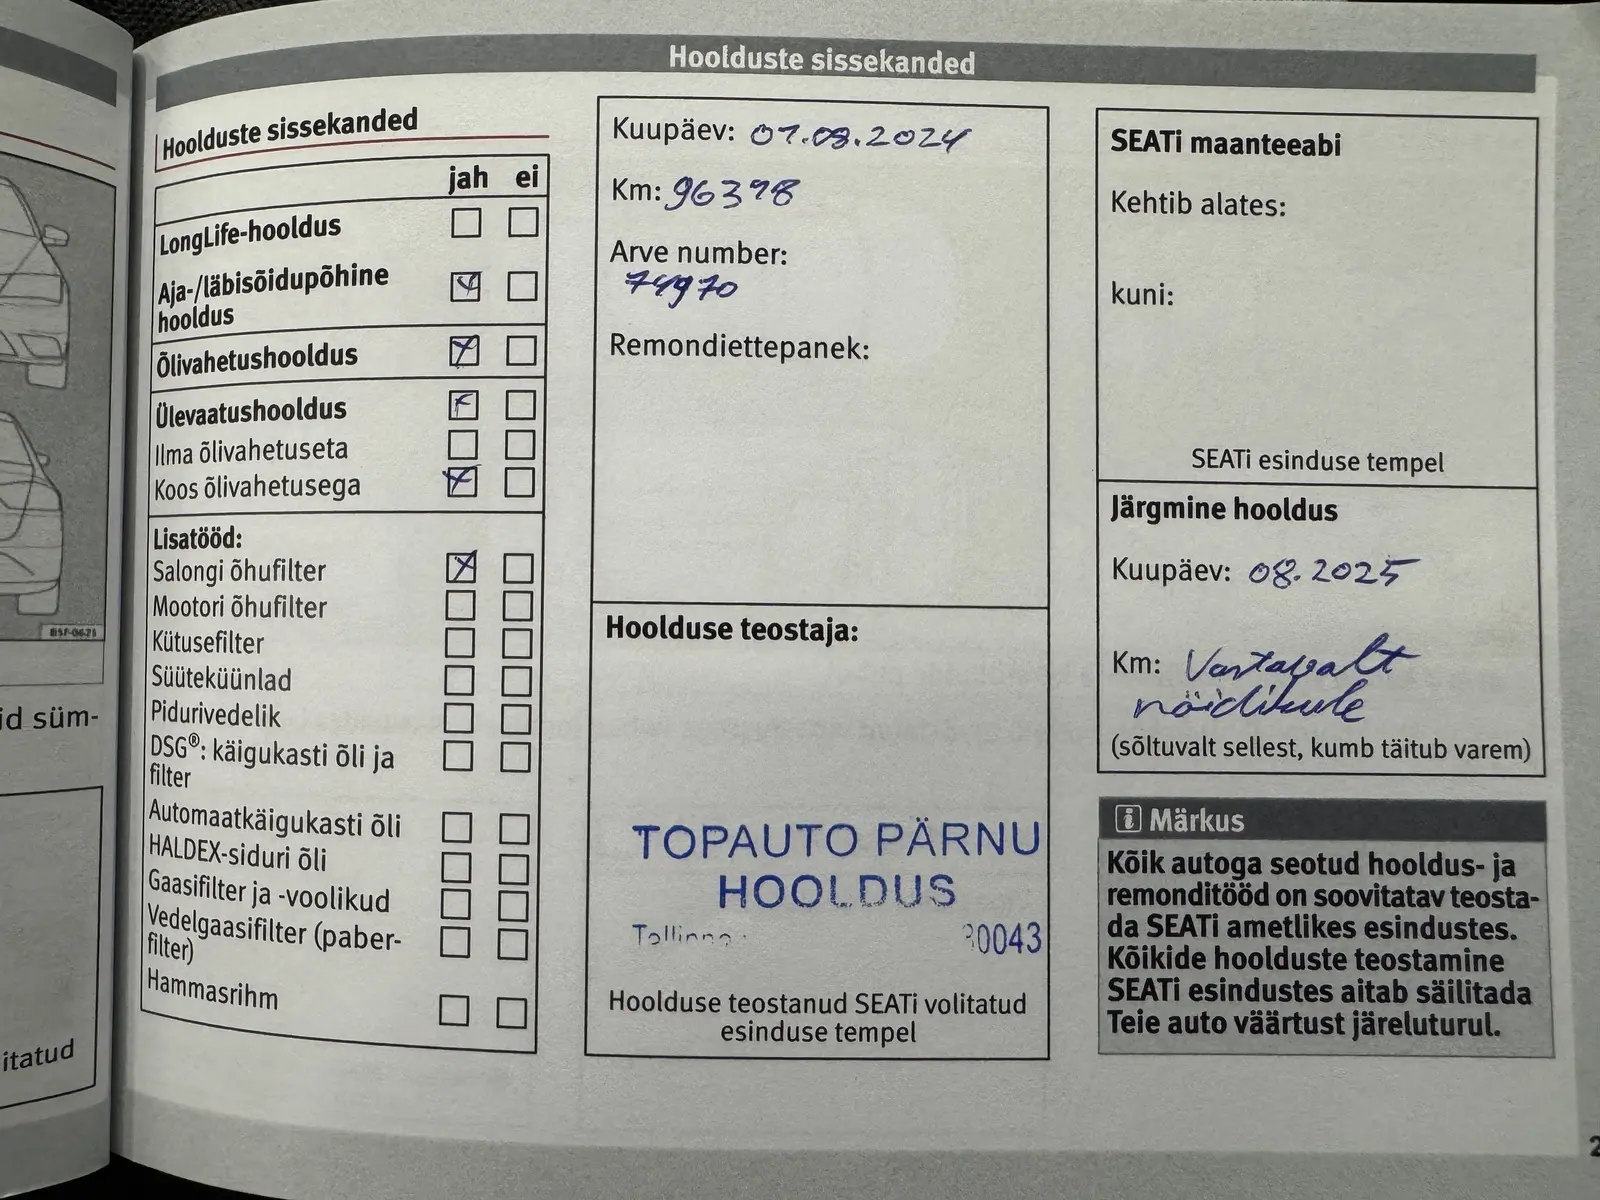 Hoolduste sissekanded
Hoolduste sissekanded
jah ei
LongLife-hooldus
Aja-/läbisõidupõhine
hooldus
Õlivahetushooldus
Ülevaatushooldus
Ilma õlivahetuseta
Koos õlivahetusega
Lisatööd:
Salongi õhufilter
Mootori õhufilter
Kütusefilter
Süüteküünlad
Pidurivedelik
DSG®: käigukasti õli ja
filter
Automaatkäigukasti õli
HALDEX-siduri õli
Gaasifilter ja -voolikud
Vedelgaasifilter (paber-
filter)
Hammasrihm
Kuupäev:
Km: 96398
Arve number:
74970
Remondiettepanek:
Hoolduse teostaja:
TOPAUTO PÄRNU
HOOLDUS
Hoolduse teostanud SEATi volitatud
esinduse tempel
SEATi maanteeabi
Kehtib alates:
kuni:
SEATi esinduse tempel
Järgmine hooldus
Kuupäev: 08.2025
Km: Vastavalt
näidikule
(sõltuvalt sellest, kumb täitub varem)
Märkus
Kõik autoga seotud hooldus- ja
remonditööd on soovitatav teosta-
da SEATi ametlikes esindustes.
Kõikide hoolduste teostamine
SEATi esindustes aitab säilitada
Teie auto väärtust järeluturul.
id süm-
itatud